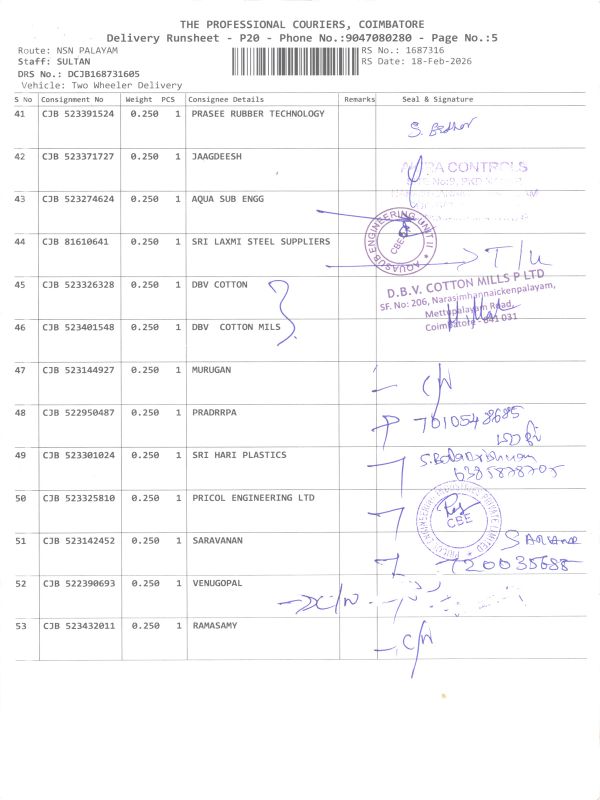 THE PROFESSIONAL COURIERS, COIMBATORE
Delivery Runsheet - P20 - Phone No.:9047080280 - Page No.:5
Route: NSN PALAYAM
RS No.: 1687316
Staff: SULTAN
RS Date: 18-Feb-2026
DRS No.: DCJB168731605
Vehicle: Two Wheeler Delivery
S No Consignment No Weight PCS Consignee Details Remarks Seal & Signature
41 CJB 523391524 0.250 1 PRASEE RUBBER TECHNOLOGY
42 CJB 523371727 0.250 1 JAAGDEESH
CONTROLS
43 CJB 523274624 0.250 1 AQUA SUB ENGG
AQUASUB ENGINEERING UNIT II
CBE
44 CJB 81610641 0.250 1 SRI LAXMI STEEL SUPPLIERS
T/L
45 CJB 523326328 0.250 1 DBV COTTON
D.B.V. COTTON MILLS P LTD
SF. No: 206, Narasimhannaickenpalayam,
Mettupalayam Road,
Coimbatore - 641 031
46 CJB 523401548 0.250 1 DBV COTTON MILS
47 CJB 523144927 0.250 1 MURUGAN
48 CJB 522950487 0.250 1 PRADRRPA
7010548685
49 CJB 523301024 0.250 1 SRI HARI PLASTICS
6385878705
50 CJB 523325810 0.250 1 PRICOL ENGINEERING LTD
PRICOL ENGINEERING INDUSTRIES PRIVATE LIMITED
CBE
51 CJB 523142452 0.250 1 SARAVANAN
720035688
52 CJB 522390693 0.250 1 VENUGOPAL
53 CJB 523432011 0.250 1 RAMASAMY